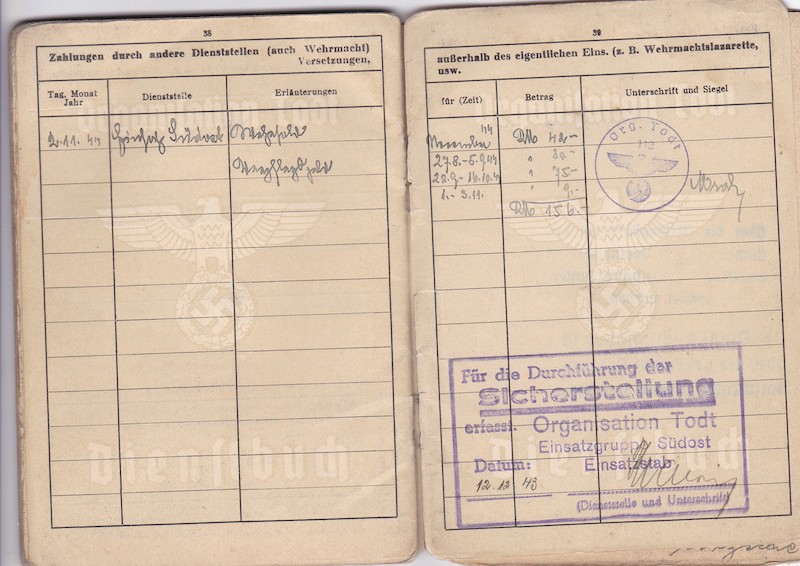 38
Zahlungen durch andere Dienststellen (auch Wehrmacht)
Versetzungen,
Tag, Monat
Jahr
Dienststelle
Erläuterungen
2.11.44 Südost Wehrsold
Verpflegsgeld
Organisation Todt
Dienstbuch
39
außerhalb des eigentlichen Eins. (z. B. Wehrmachtslazarette,
usw.
für (Zeit)
Betrag
Unterschrift und Siegel
November 44 RM 42.-
27.8.-5.9.44 " 30.-
" 75.-
1.- 3.11. " 9.-
RM 156.-
Org. Todt
112
Organisation Todt
Für die Durchführung der
Sicherstellung
erfasst. Organisation Todt
Einsatzgruppe Südost
Datum: Einsatzstab
12.12 43
(Dienststelle und Unterschrift)
Dienstbuch